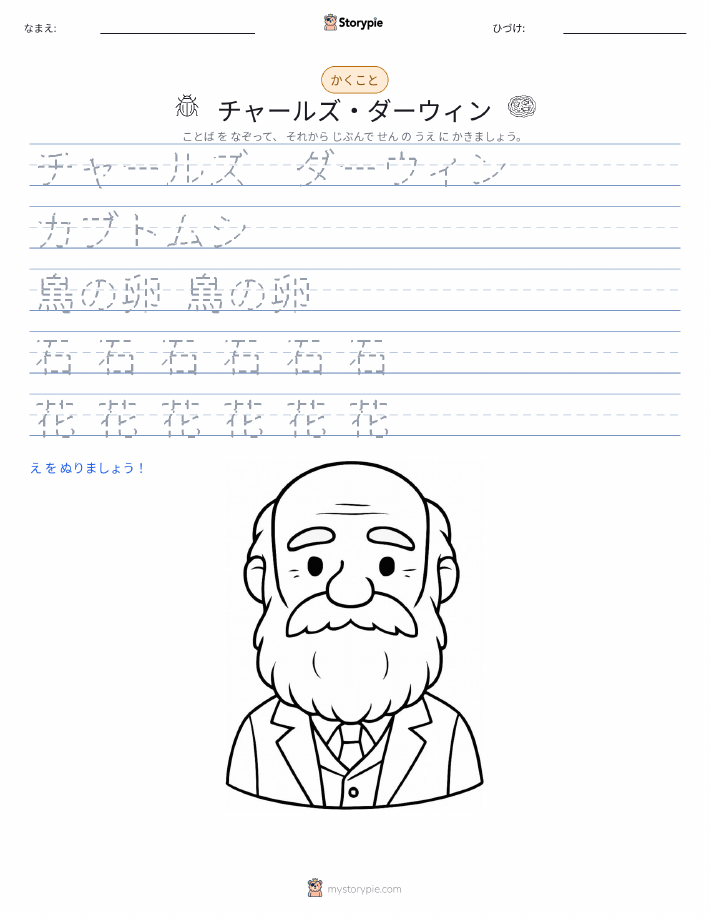 なまえ: Storypie ひづけ:
かくこと
チャールズ・ダーウィン
ことば を なぞって、 それから じぶんで せん の うえ に かきましょう。
チャールズ ダーウィン
カブトムシ
鳥の卵 鳥の卵
石 石 石 石 石 石
花 花 花 花 花 花
え を ぬりましょう！
mystorypie.com